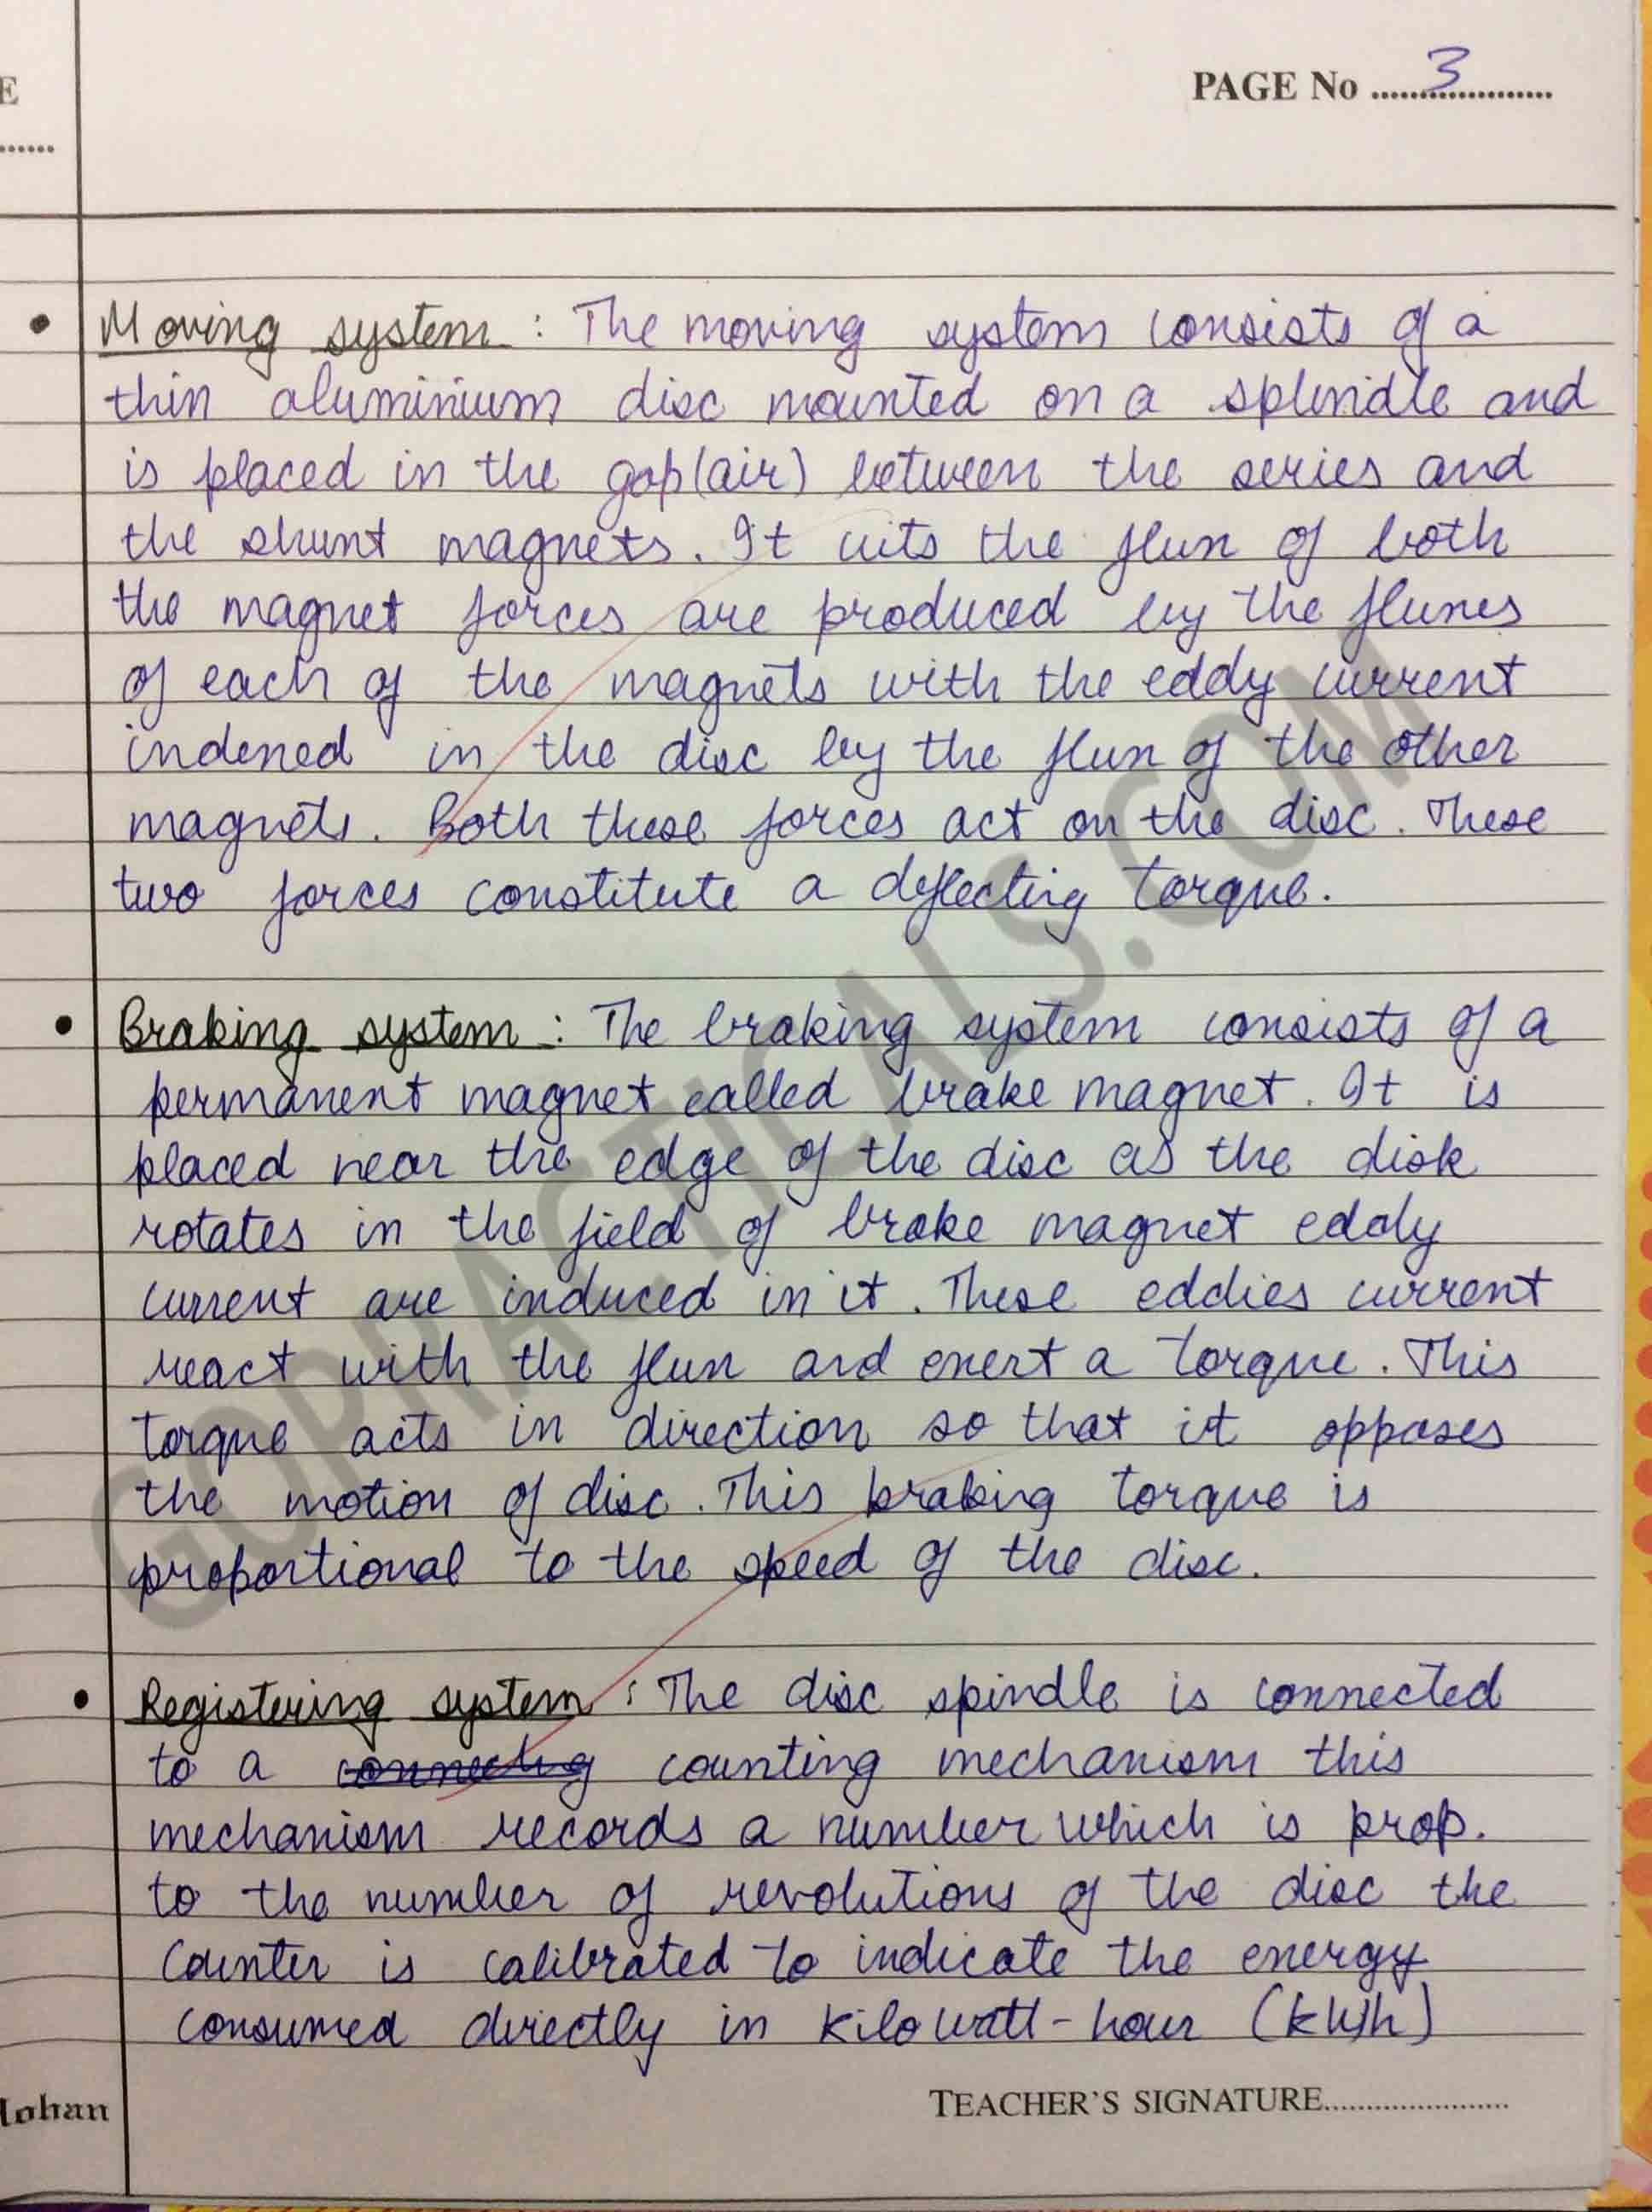 E
PAGE No ....3....
• Moving system : The moving system consists of a
thin aluminium disc mounted on a splindle and
is placed in the gap(air) between the series and
the shunt magnets. It cuts the flux of both
the magnet forces are produced by the fluxes
of each of the magnets with the eddy current
indened in the disc by the flux of the other
magnets. Both these forces act on the disc. These
two forces constitute a deflecting torque.
• Braking system : The braking system consists of a
permanent magnet called brake magnet. It is
placed near the edge of the disc as the disk
rotates in the field of brake magnet eddy
current are induced in it. These eddies current
react with the flux and exert a torque. This
torque acts in direction so that it opposes
the motion of disc. This braking torque is
proportional to the speed of the disc.
• Registering system : The disc spindle is connected
to a connecting counting mechanism this
mechanism records a number which is prop.
to the number of revolutions of the disc the
counter is calibrated to indicate the energy
consumed directly in kilowatt-hour (kWh)
TEACHER'S SIGNATURE......................
GOPRACTICALS.COM